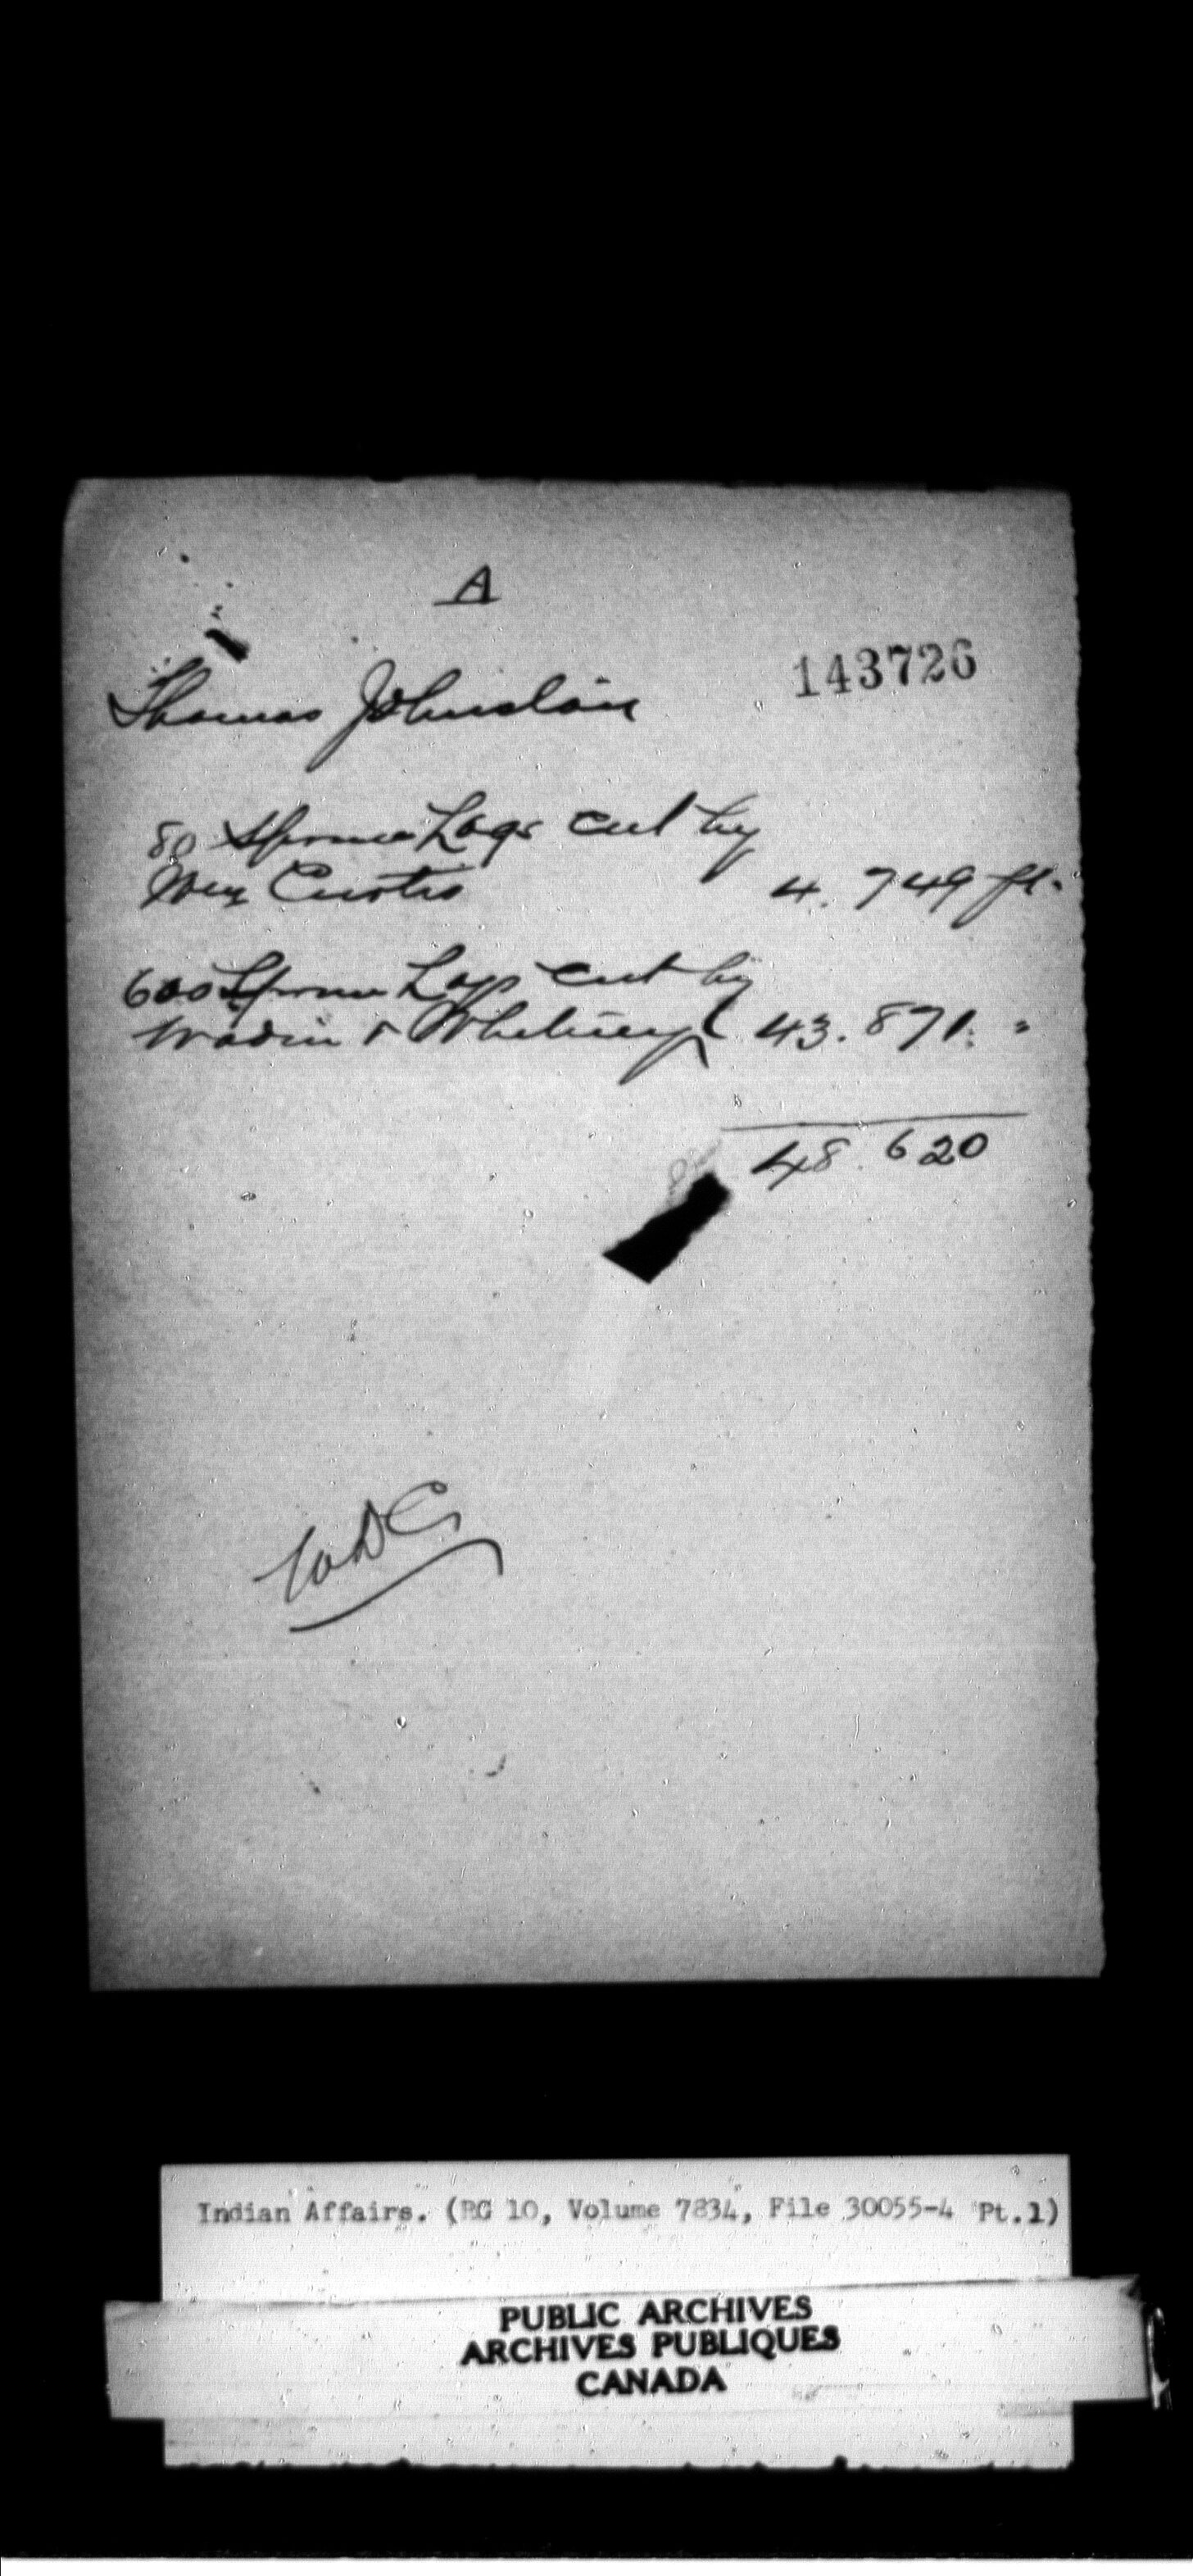 A
143726
Thomas Johnston
80 Spruce Logs cut by
Wm Curtis 4.749 ft.
600 Spruce Logs cut by
& Whitney 43.871. "
48.620
WDC
Indian Affairs. (RG 10, Volume 7834, File 30055-4 Pt.1)
PUBLIC ARCHIVES
ARCHIVES PUBLIQUES
CANADA